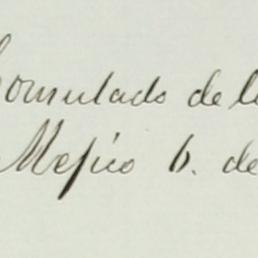 Consulado de l
Mejico 6. de